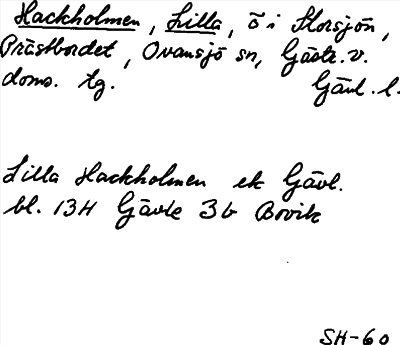 Hackholmen, Lilla, ö i Storsjön,
Prästbordet, Ovansjö sn, Gästr. v.
doms. tg. Gävl. l.
Lilla Hackholmen ek Gävl.
bl. 13H Gävle 3b Bovik
SH-60